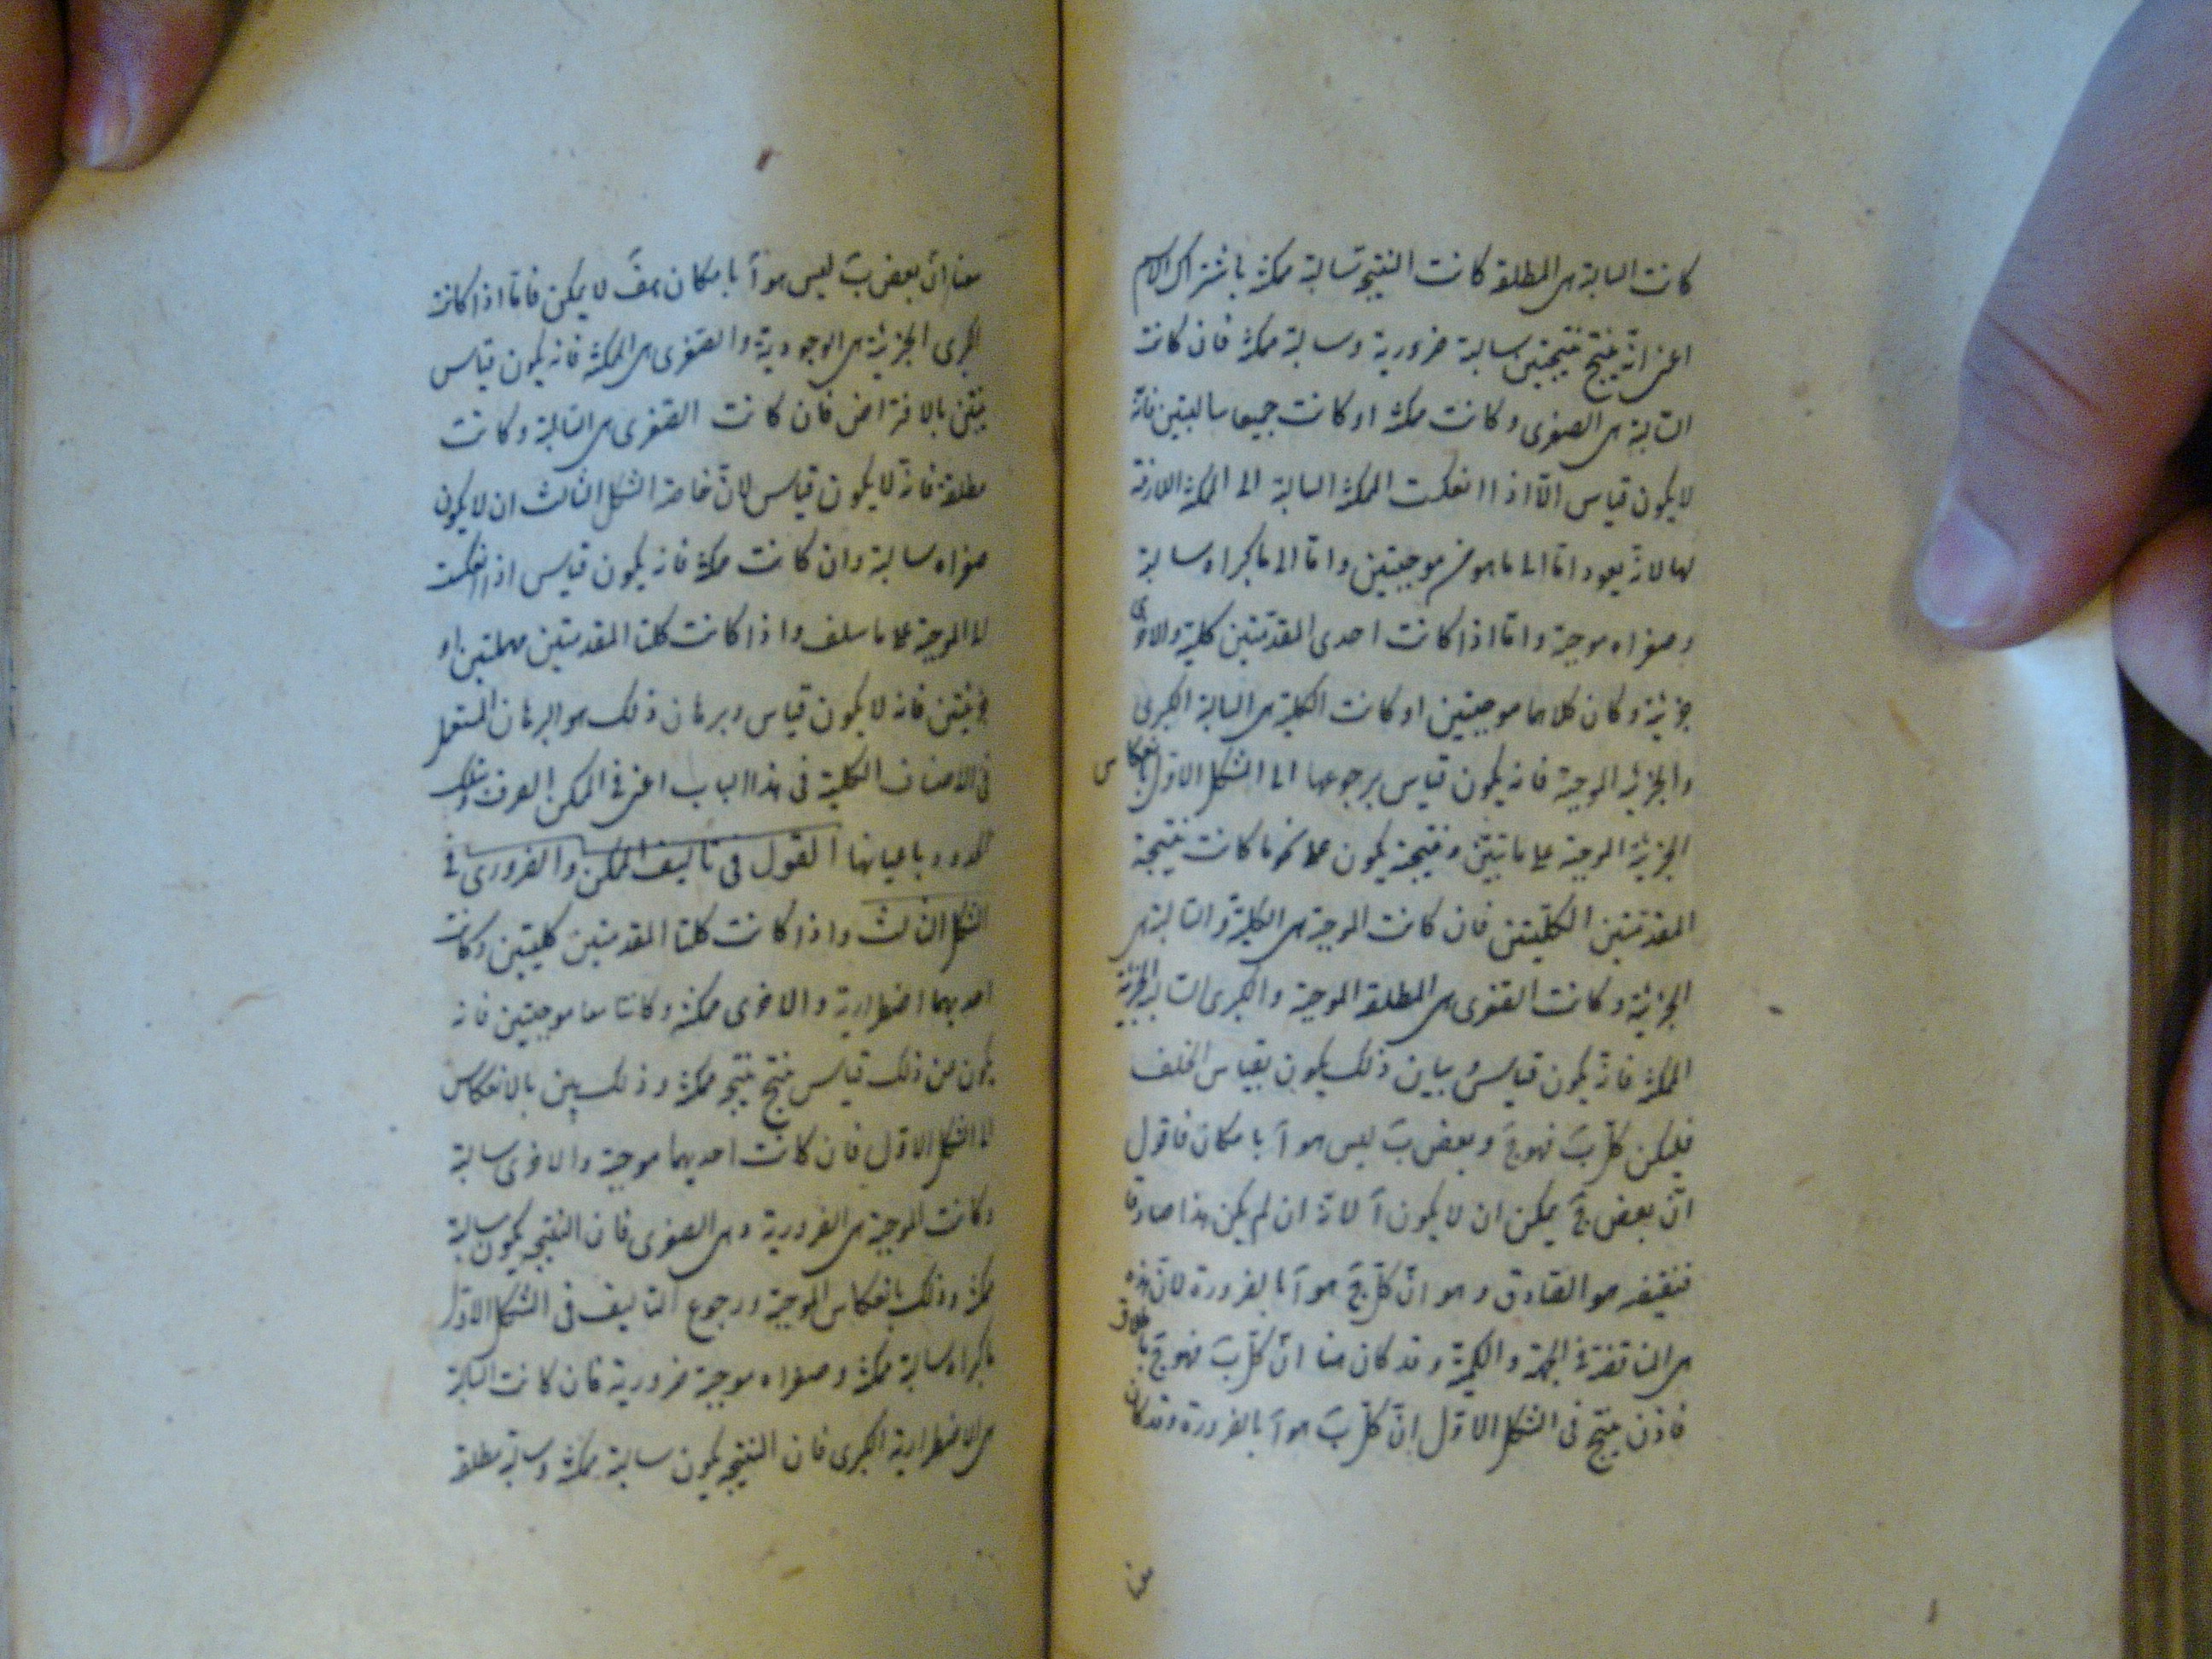 كانت السالبة هى المطلقة كانت النتيجة سالبة ممكنة باشتراك الاسم
اعنى انه ينتج نتيجتين سالبة ضرورية وسالبة ممكنة فان كانت
السالبة هى الصغرى وكانت ممكنة او كانت جميعا سالبتين فانه
لا يكون قياس الا اذا انعكست الممكنة السالبة الى الممكنة اللازمة
لها لانه يعود اما الى ما هو من موجبتين واما الى ما كبراه سالبة
وصغراه موجبة واما اذا كانت احدى المقدمتين كلية والاخرى
جزئية وكان كلاهما موجبتين او كانت الكلية هى السالبة الكبرى
والجزئية الموجبة فانه يكون قياس برجوعها الى الشكل الاول بانعكاس
الجزئية الموجبة على ما تبين ونتيجته يكون على نحو ما كانت نتيجة
المقدمتين الكليتين فان كانت الموجبة هى الكلية والسالبة هى
الجزئية وكانت الصغرى هى المطلقة الموجبة والكبرى السالبة الجزئية
الممكنة فانه يكون قياس وبيان ذلك يكون بقياس الخلف
فليكن كل ب فهو ج وبعض ب ليس هو آ بامكان فاقول
ان بعض ج يمكن ان لا يكون آ لانه ان لم يكن هذا صادقا
فنقيضه هو الصادق وهو ان كل ج هو آ بالضرورة لان هذه
هى المناقضة فى الجهة والكمية وقد كان معنا ان كل ب فهو ج باطلاق
فاذن ينتج فى الشكل الاول ان كل ب هو آ بالضرورة وقد كان
معنا ان بعض ب ليس هو آ بامكان هف لا يمكن فاما اذا كانت
الكبرى الجزئية هى الوجودية والصغرى هى الممكنة فانه يكون قياس
يتبين بالافتراض فان كانت الصغرى هى السالبة وكانت
مطلقة فانه لا يكون قياس لان خاصة الشكل الثالث ان لا يكون
صغراه سالبة وان كانت ممكنة فانه يكون قياس اذا انعكست
الى الموجبة على ما سلف واذا كانت كلتا المقدمتين مهملتين او
جزئيتين فانه لا يكون قياس وبرهان ذلك هو البرهان المستعمل
فى الاصناف الكلية فى هذا الباب اعنى فى الممكن الصرف وتلك
الحدود باعيانها القول فى تاليف الممكن والضرورى فى
الشكل الثالث واذا كانت كلتا المقدمتين كليتين وكانت
احديهما اضطرارية والاخرى ممكنة وكانتا معا موجبتين فانه
يكون من ذلك قياس ينتج نتيجة ممكنة وذلك يبين بالانعكاس
الى الشكل الاول فان كانت احديهما موجبة والاخرى سالبة
وكانت الموجبة هى الضرورية وهى الصغرى فان النتيجة يكون سالبة
ممكنة وذلك بانعكاس الموجبة ورجوع التاليف فى الشكل الاول
ما كبراه سالبة ممكنة وصغراه موجبة ضرورية فان كانت السالبة
هى الاضطرارية الكبرى فان النتيجة يكون سالبة ممكنة وسالبة مطلقة